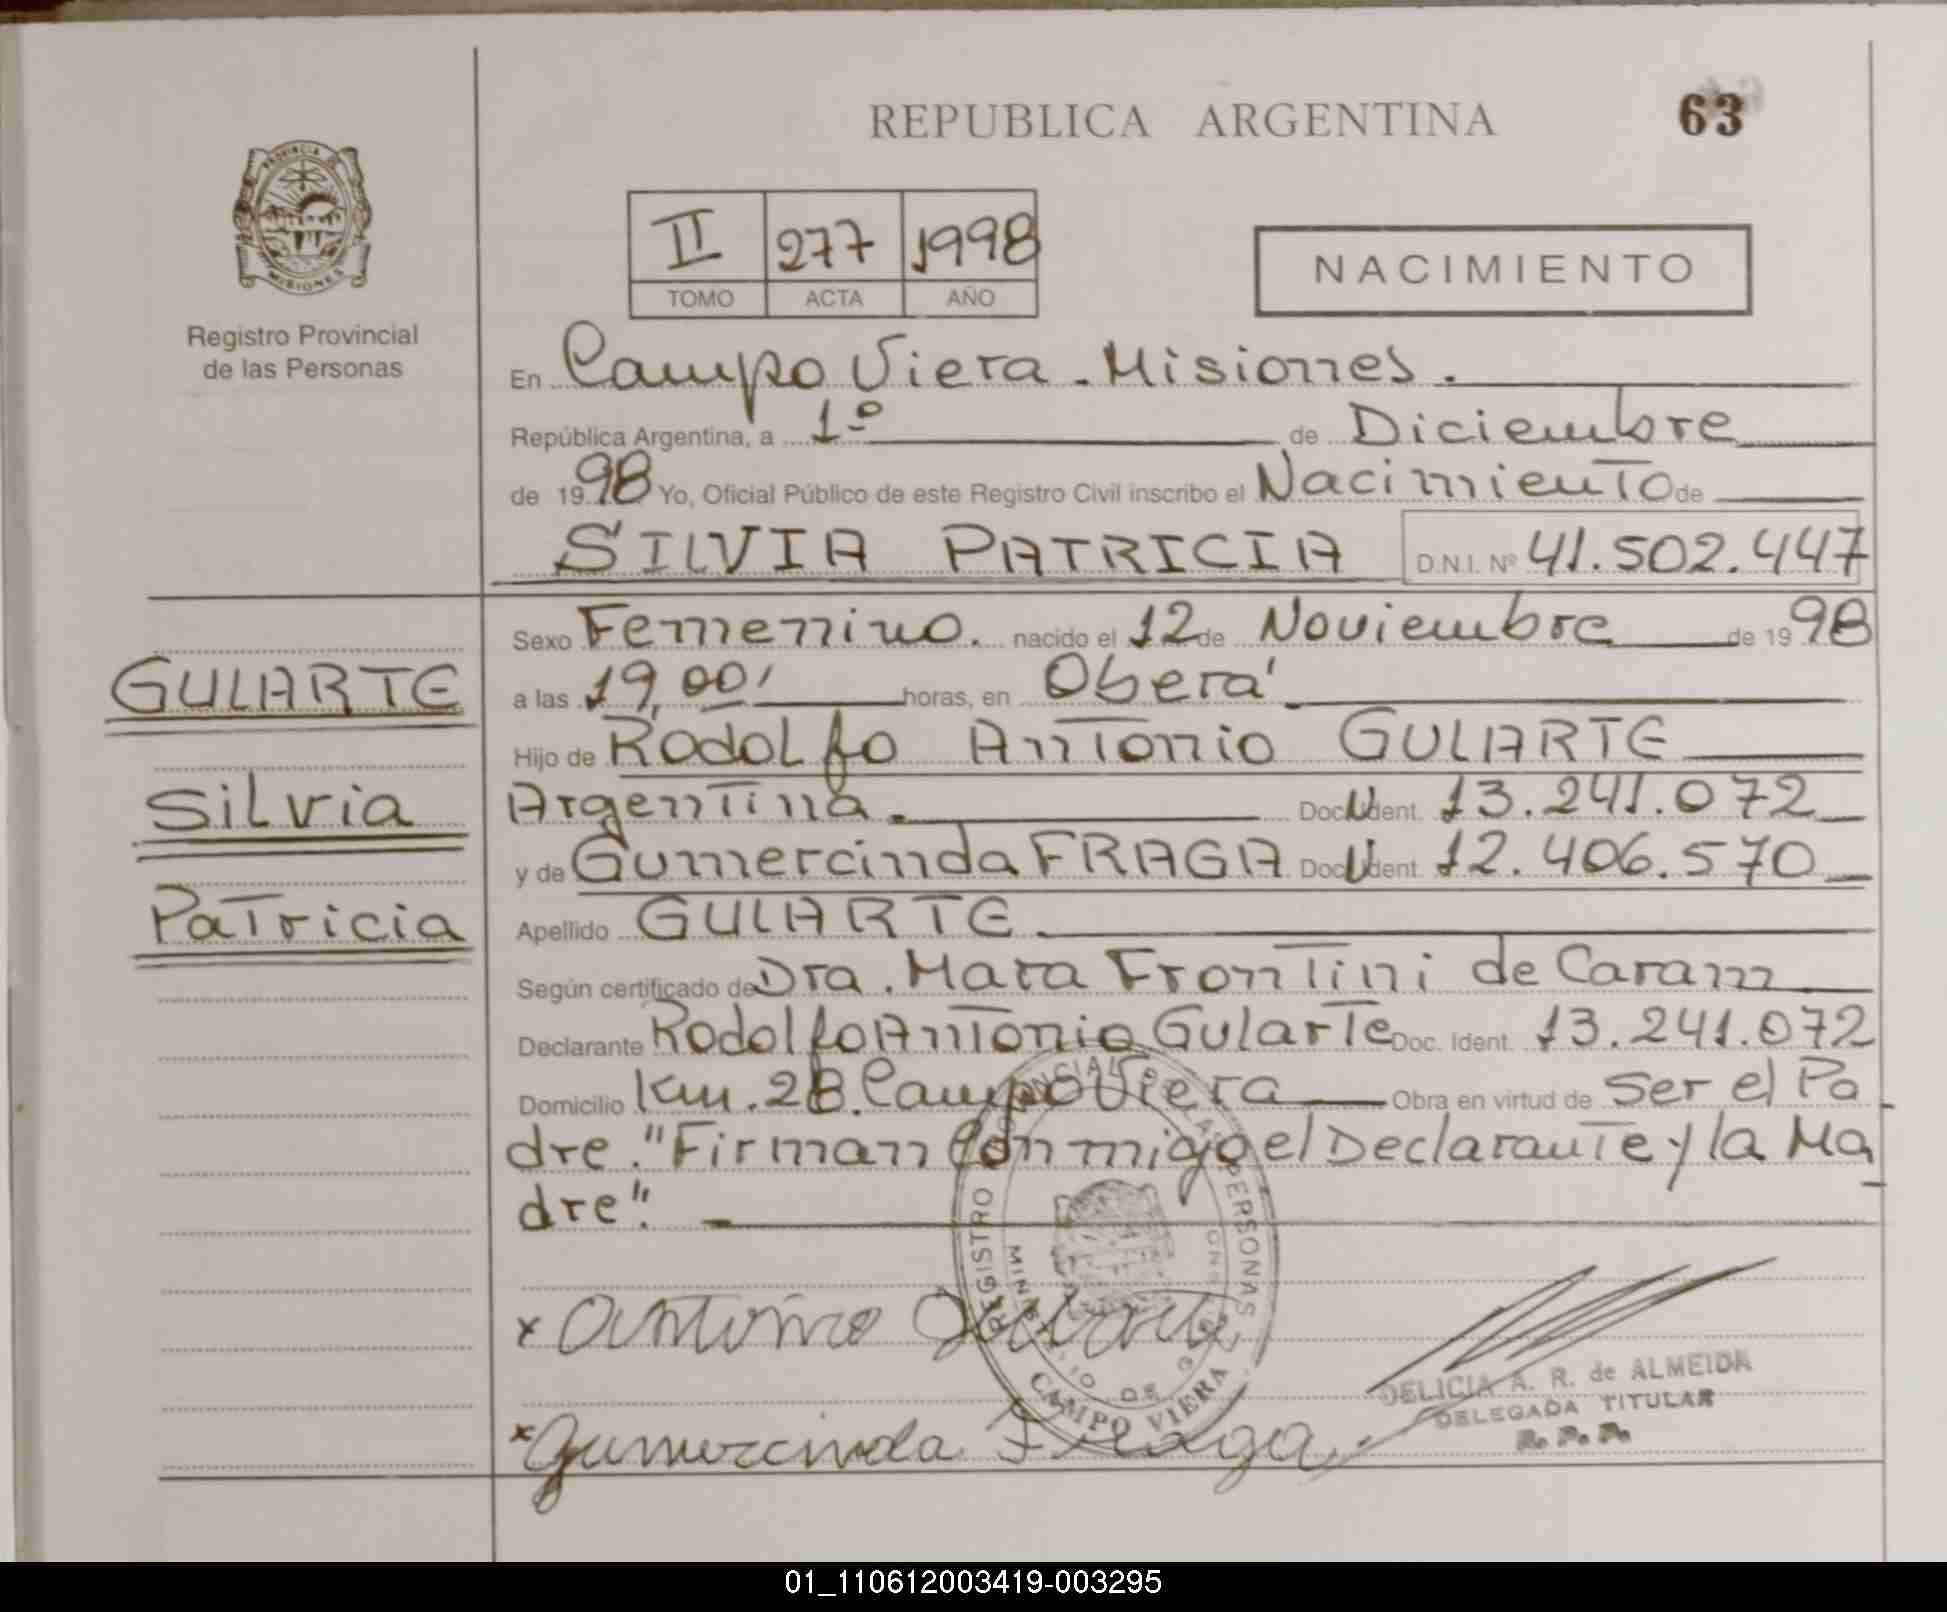 REPUBLICA ARGENTINA
63
PROVINCIA DE
MISIONES
Registro Provincial
de las Personas
II 277 1998
TOMO ACTA AÑO
NACIMIENTO
En Campo Viera - Misiones.
República Argentina, a 1º de Diciembre
de 1998 Yo, Oficial Público de este Registro Civil inscribo el Nacimiento de
SILVIA PATRICIA D.N.I. Nº 41.502.447
Sexo Femenino. nacido el 12 de Noviembre de 1998
GULARTE
a las 19,00' horas, en Oberá
Hijo de Rodolfo Antonio GULARTE
Silvia
Argentina. Doc. Ident. 13.241.072
y de Gumercinda FRAGA Doc. Ident. 12.406.570
Patricia
Apellido GULARTE
Según certificado de Dra. Mara Frontini de Caram
Declarante Rodolfo Antonio Gularte Doc. Ident. 13.241.072
Domicilio Km. 28. Campo Viera Obra en virtud de Ser el Pa
dre. "Firman Conmigo el Declarante y la Ma
dre".
x Antonio Gularte
REGISTRO PROVINCIAL DE LAS PERSONAS
CAMPO VIERA
DELICIA A. R. de ALMEIDA
DELEGADA TITULAR
R. P. P.
x Gumercinda Fraga
01_110612003419-003295